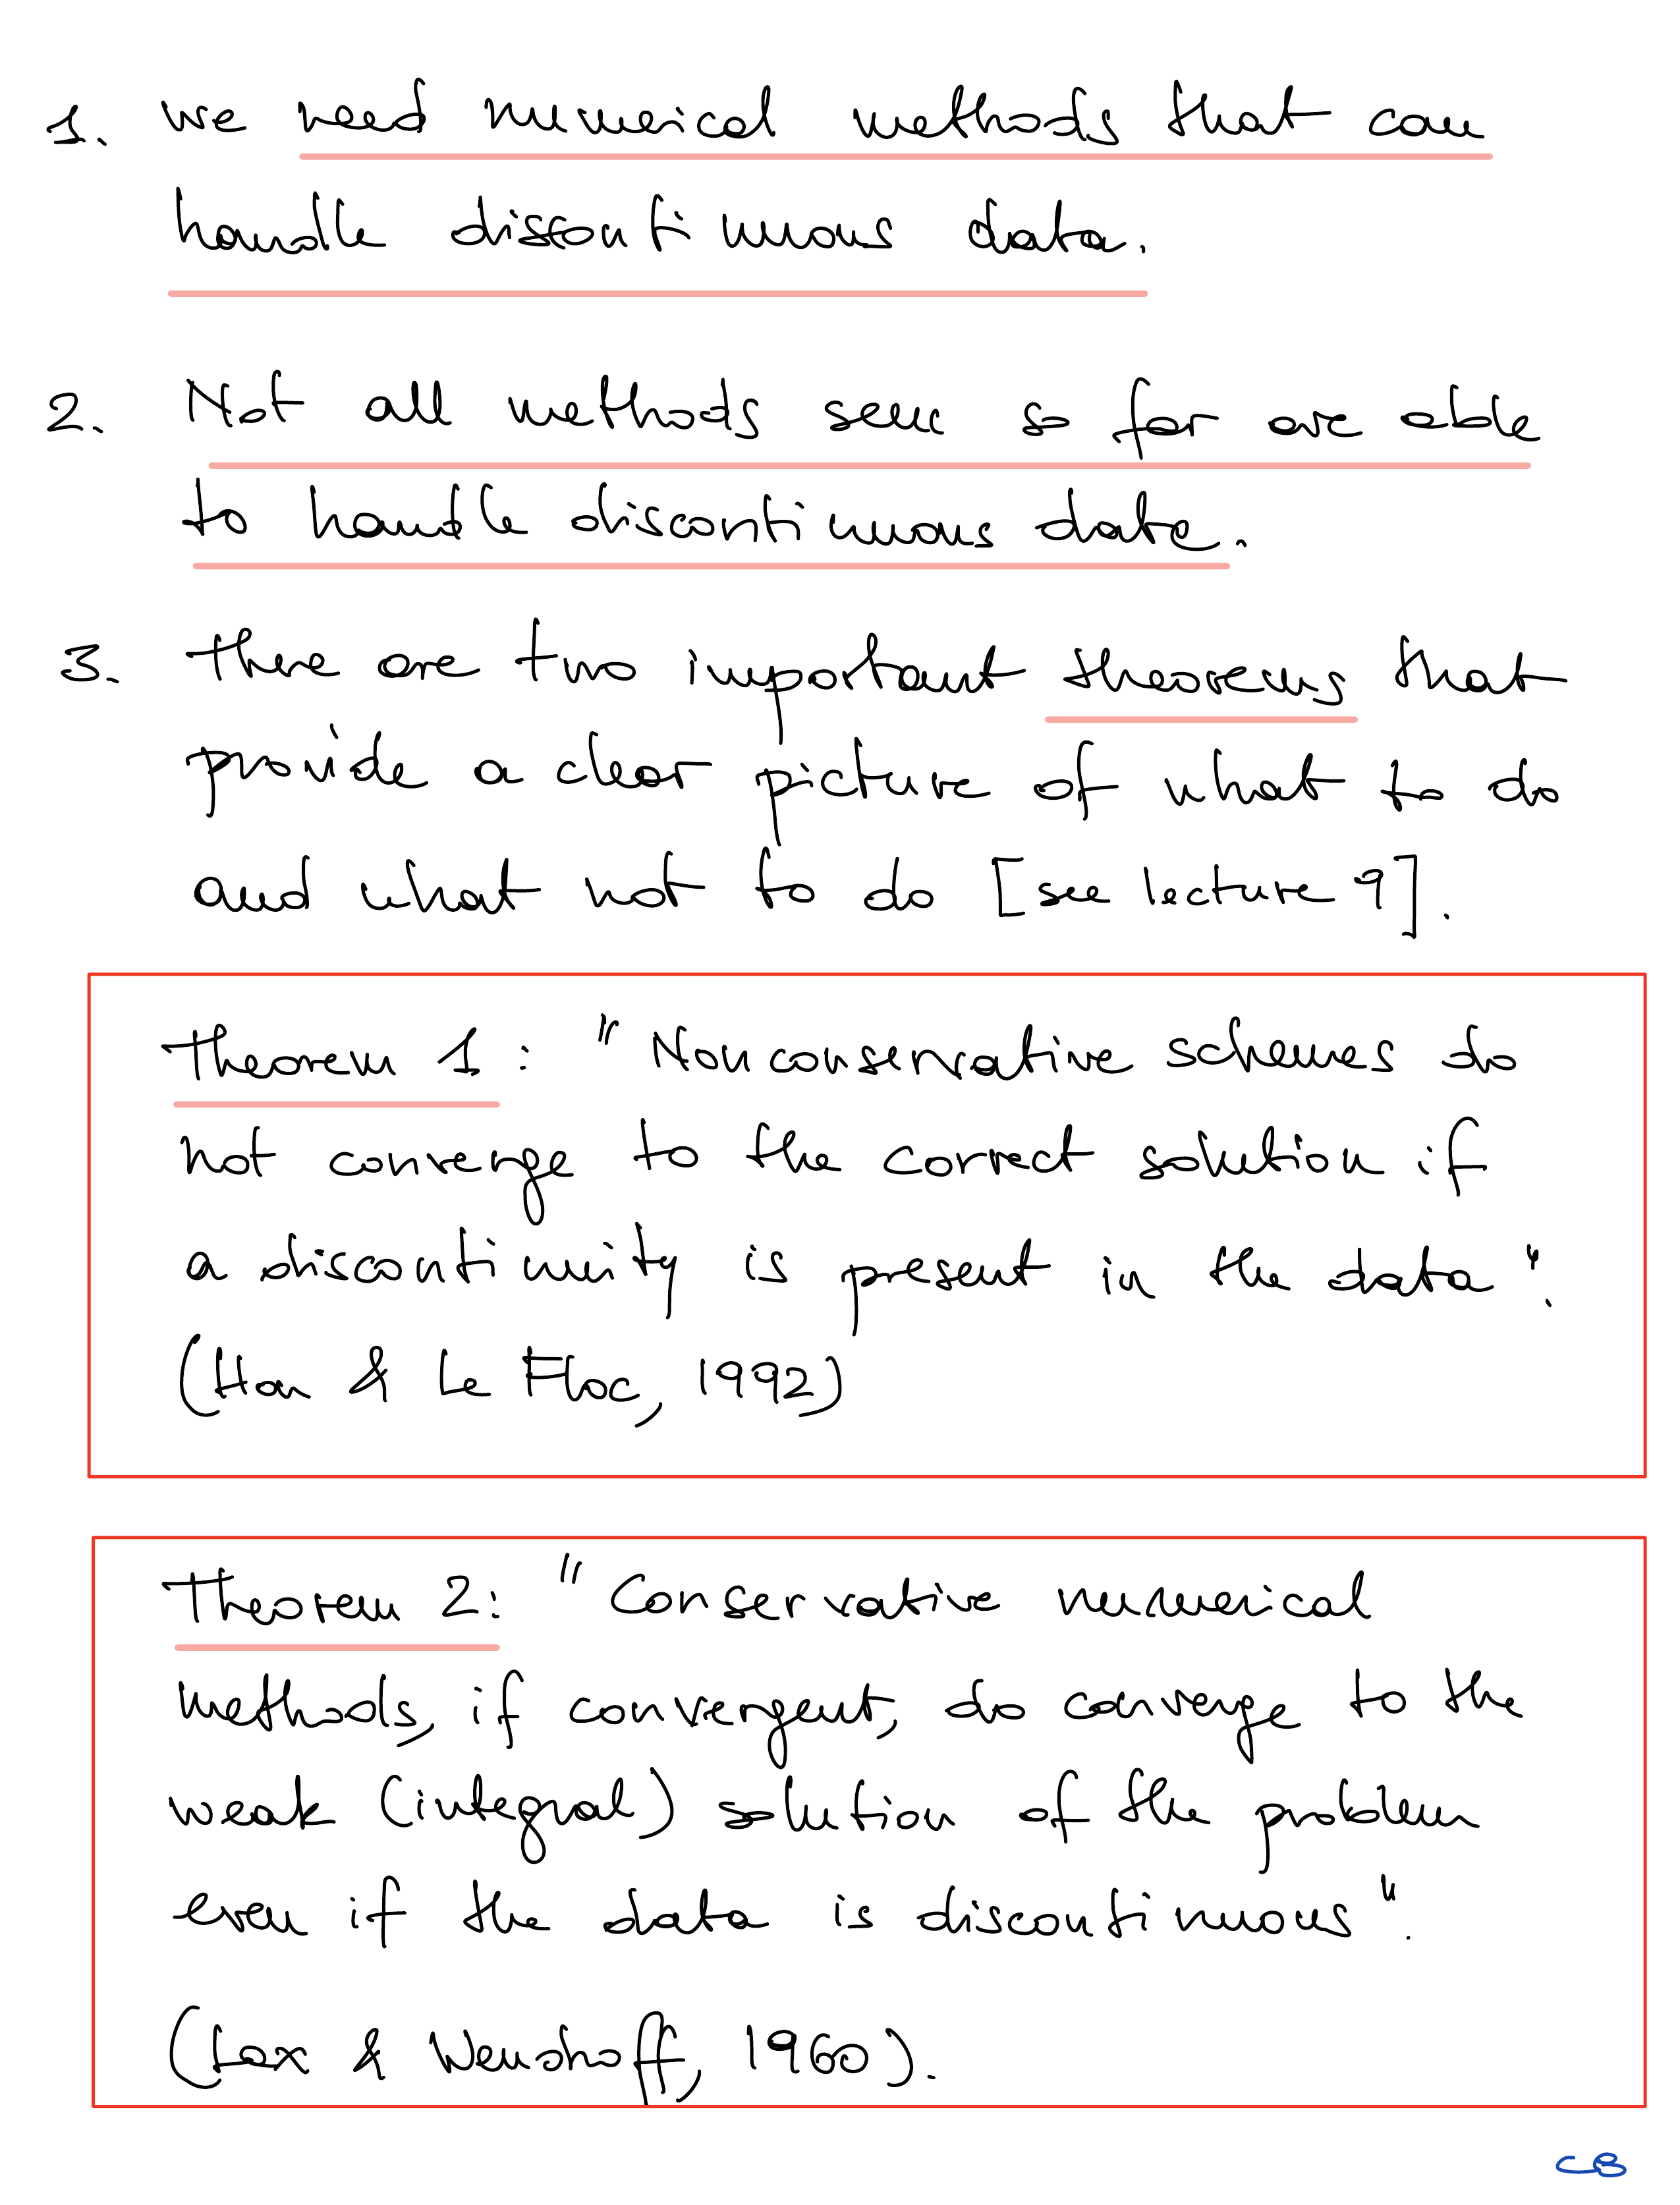 1. we need numerical methods that can
handle discontinuous data.
2. Not all methods seen so far are able
to handle discontinuous data.
3. there are two important theorems that
provide a clear picture of what to do
and what not to do [see lecture 9].
Theorem 1: "Nonconservative schemes do
not converge to the correct solution if
a discontinuity is present in the data".
(Hou & Le Floc, 1992)
Theorem 2: "Conservative numerical
methods, if convergent, do converge to the
weak (integral) solution of the problem
even if the data is discontinuous".
(Lax & Wendroff, 1960).
CB